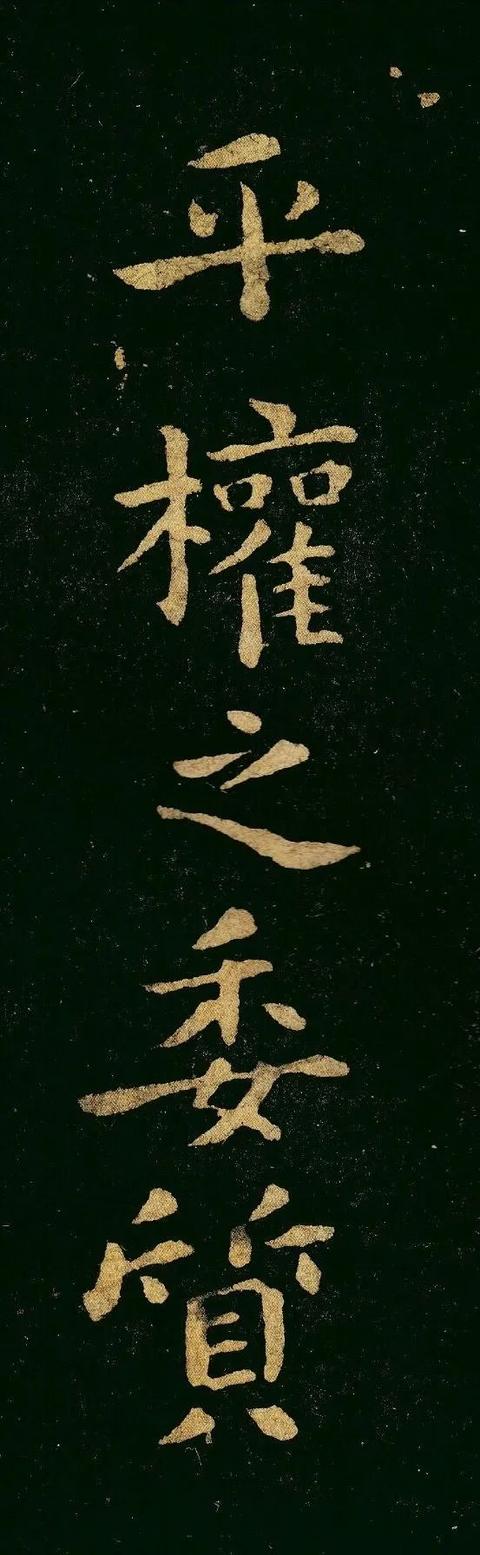 平權之委質